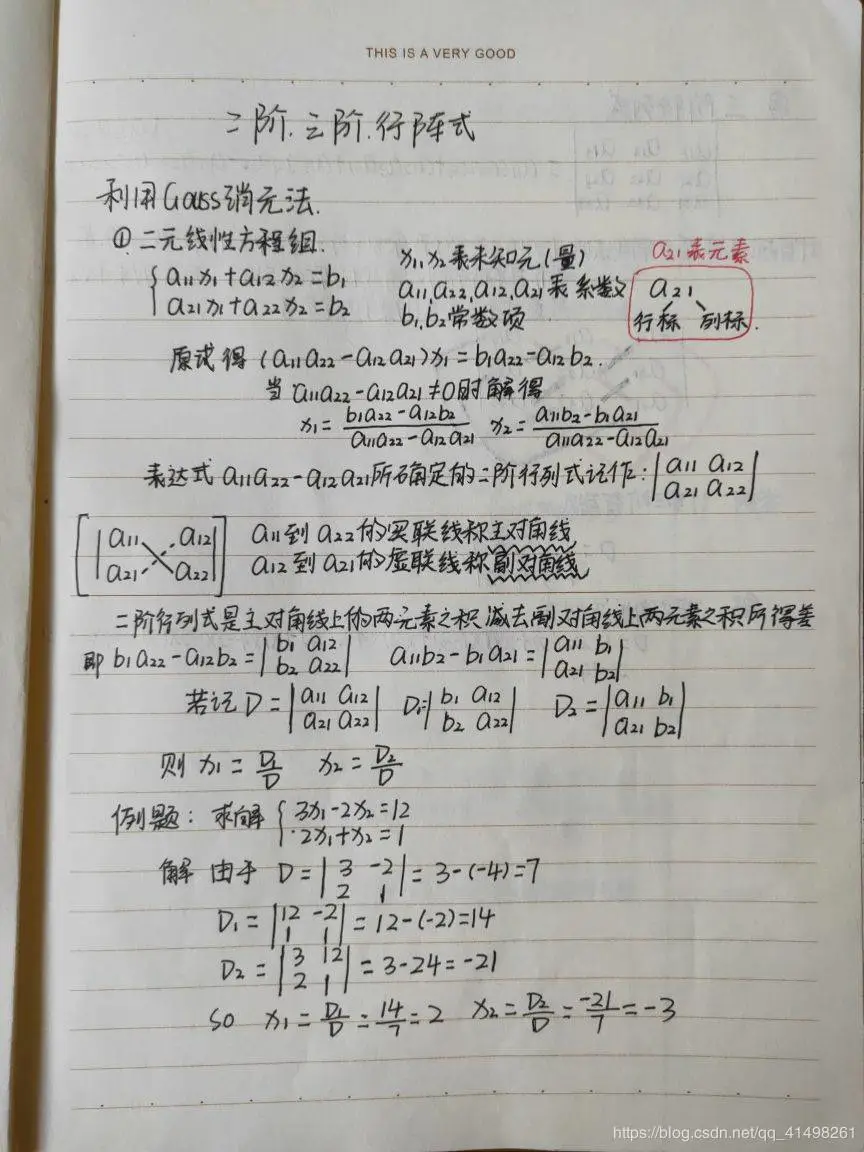 THIS IS A VERY GOOD
二阶.三阶.行阵式
利用Gauss消元法.
①二元线性方程组.
{a11x1+a12x2=b1
a21x1+a22x2=b2
x1,x2表未知元(量)
a11,a22,a12,a21表系数
b1,b2常数项
a21表元素
a21
行标 列标.
原试得(a11a22-a12a21)x1=b1a22-a12b2.
当 a11a22-a12a21≠0时解得
x1=(b1a22-a12b2)/(a11a22-a12a21) x2=(a11b2-b1a21)/(a11a22-a12a21)
表达式a11a22-a12a21所确定的二阶行列式记作:|a11 a12|
|a21 a22|
[|a11 a12|
|a21 a22|]
a11到a22的实联线称主对角线
a12到a21的虚联线称副对角线
二阶行列式是主对角线上的两元素之积减去副对角线上两元素之积所得差
即 b1a22-a12b2=|b1 a12| a11b2-b1a21=|a11 b1|
|b2 a22| |a21 b2|
若记D=|a11 a12| D1=|b1 a12| D2=|a11 b1|
|a21 a22| |b2 a22| |a21 b2|
则 x1=D1/D x2=D2/D
例题: 求解{3x1-2x2=12
2x1+x2=1
解 由于 D=|3 -2|=3-(-4)=7
|2 1|
D1=|12 -2|=12-(-2)=14
|1 1|
D2=|3 12|=3-24=-21
|2 1|
so x1=D1/D=14/7=2 x2=D2/D=-21/7=-3
https://blog.csdn.net/qq_41498261